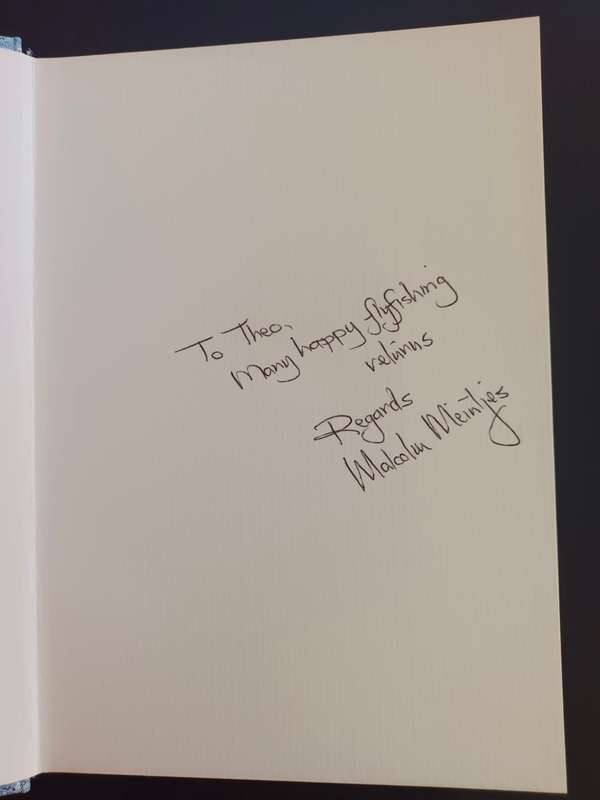 To Theo,
Many happy flyfishing
returns
Regards
Malcolm Meintjes